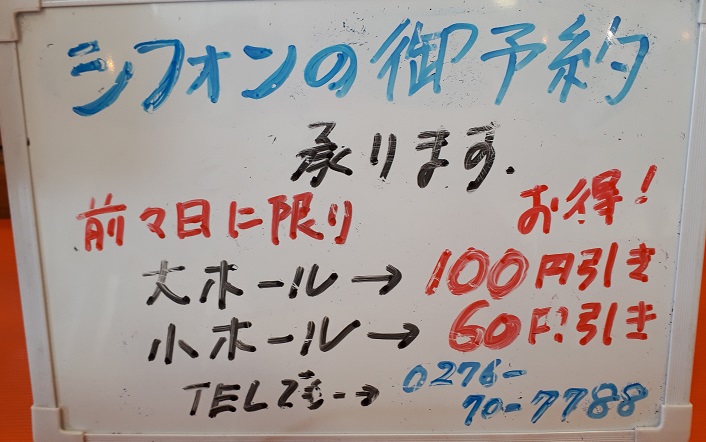 シフォンの御予約
承ります.
前々日に限り お得！
大ホール→100円引き
小ホール→60円引き
TELでも→0276-
70-7788